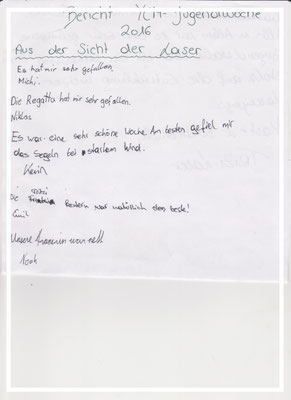 Bericht YCM-Jugendwoche
2016
Aus der Sicht der Laser
Es hat mir sehr gefallen.
Michi.
Die Regatta hat mir sehr gefallen.
Niklas
Es war eine sehr schöne Woche Am besten gefiel mir
das Segeln bei starkem Wind.
Kevin
Die
war natürlich das beste!
Emil
Unsere trainerin war nett
Noah